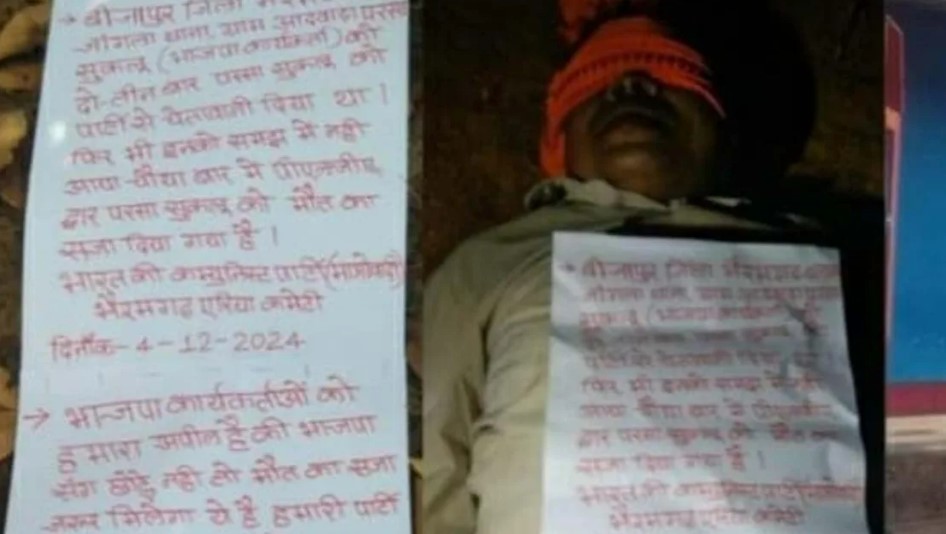 → बीजापुर जिला
जांगला थाना, ग्राम आदवाड़ा परसा
सुकलू (भाजपा कार्यकर्ता) को
दो-तीन बार परसा सुकलू को
पार्टी से चेतावनी दिया था।
फिर भी इनको समझ में नहीं
आया चौथा बार में पीएलजीए
द्वार परसा सुकलू को मौत का
सजा दिया गया है।
भारत की कम्युनिस्ट पार्टी (माओवादी)
भैरमगढ़ एरिया कमेटी
दिनाँक- 4-12-2024
→ भाजपा कार्यकर्ताओं को
हमारा अपील है की भाजपा
संग छोड़े नहीं तो मौत का सजा
जरूर मिलेगा ये है हमारी पार्टी
→ बीजापुर जिला भैरमगढ़
जांगला थाना, ग्राम
सुकलू (भाजपा कार्यकर्ता) को
फिर भी इनको समझ में नहीं
आया चौथा बार में पीएलजीए
द्वार परसा सुकलू को मौत का
सजा दिया गया है।
भारत की कम्युनिस्ट पार्टी
भैरमगढ़ एरिया कमेटी